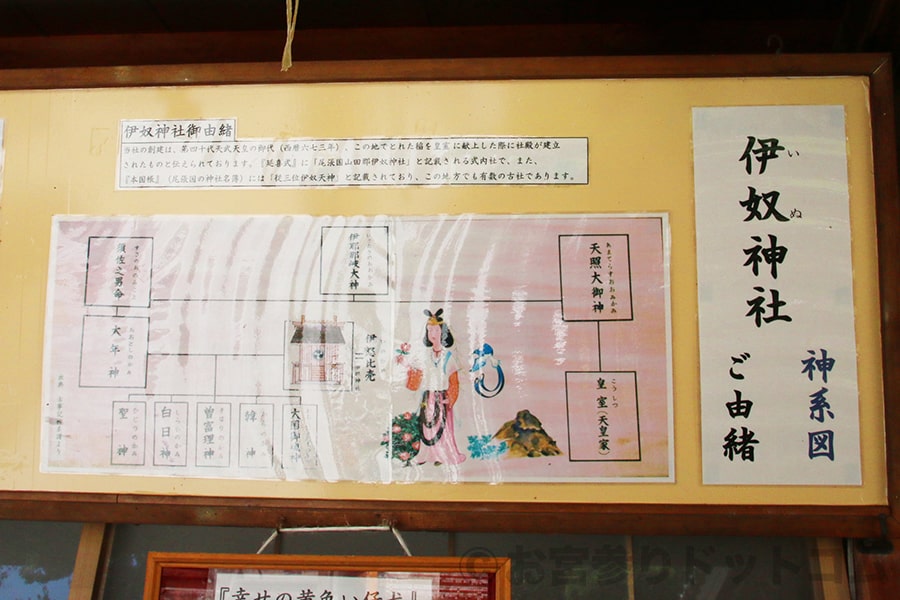 伊奴神社御由緒
当社の創建は、第四十代天武天皇の御代(西暦六七三年)、この地でとれた稲を皇室に献上した際に社殿が建立
されたものと伝えられております。『延喜式』に「尾張国山田郡伊奴神社」と記載される式内社で、また、
『本国帳』(尾張国の神社名簿)には「従三位伊奴天神」と記載されており、この地方でも有数の古社であります。
伊奴神社
いぬ
ご由緒
神系図
天照大御神
あまてらすおおみかみ
皇室(天皇家)
こうしつ
伊耶那岐大神
伊怒比売
伊奴神社
須佐之男命
すさのおのみこと
大年神
おおとしのかみ
大国御魂神
韓神
曽富理神
白日神
聖神
ひじりのかみ
『幸せの黄色い仔犬』
©お宮参りドットコム